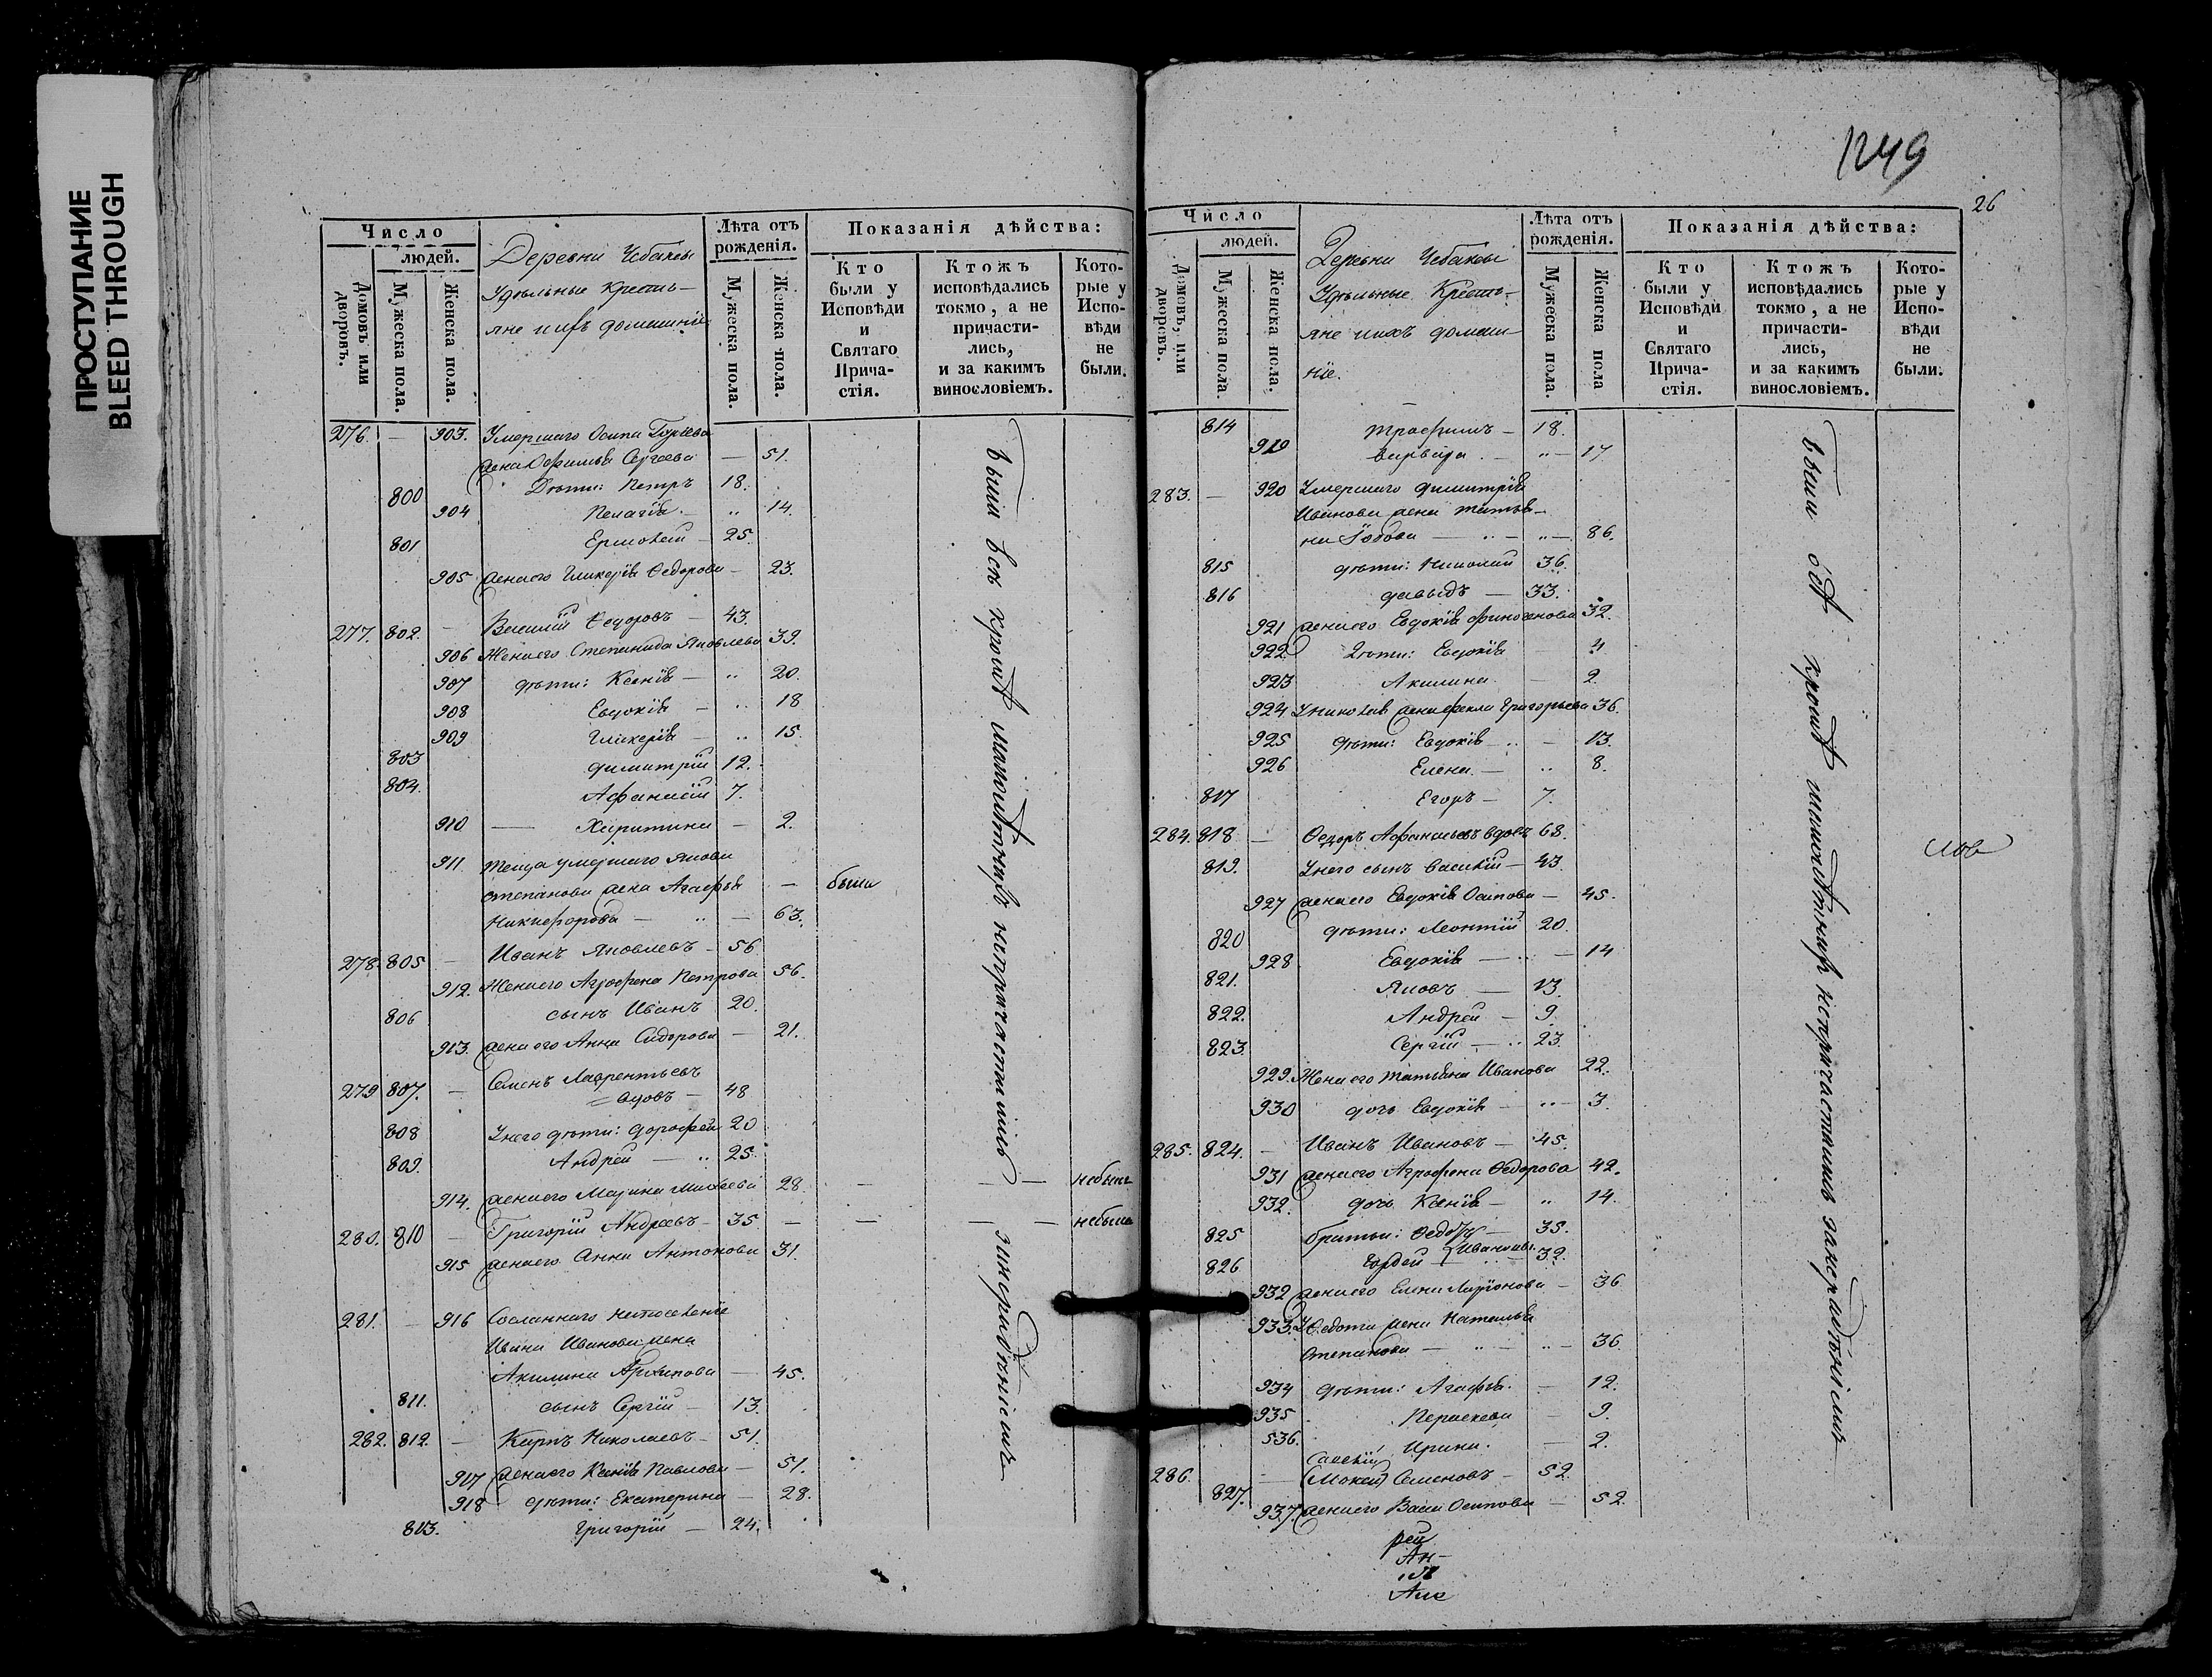 ПРОСТУПАНИЕ
BLEED THROUGH
Число
людей.
Домовъ или дворовъ.
Мужеска пола.
Женска пола.
Деревни Чебаксы
Удѣльные кресть-
яне и ихъ домашніе
Лѣта отъ рожденія.
Мужеска пола.
Женска пола.
Показанія дѣйства:
Кто были у Исповѣди и Святаго Прича-стія.
Ктожъ исповѣдались токмо, а не причасти-лись, и за какимъ винословіемъ.
Кото-рые у Испо-вѣди не были.
276. — 903. Умершаго Осипа
жена Сергеева — 51.
800 Дѣти: Петръ 18.
904 Пелагія — „ 14.
801 Ермолай — 25.
905 жена его Гликерія Ѳедорова — 23.
277. 802. — Василій Ѳедоровъ — 43.
906 Жена его Степанида Яковлева 39.
907 дѣти: Ксенія — „ 20.
908 Евдокія — „ 18
909 Гликерія — „ 15.
803 Димитрій 12.
804. Афанасій 7.
910 — Харитина — 2.
911. Теща умершаго Якова
Степанова жена Агафья — была
Никифорова — „ — 63.
278. 805 — Иванъ Яковлевъ — 56.
912. Жена его Агрофена Петрова 56.
806 сынъ Иванъ 20.
913. жена его Анна Сидорова — 21.
279 807. — Семенъ Лаврентьевъ
вдовъ — 48
808 У него дѣти: Дорофей 20
809. Андрей — „ 25.
914. жена его Марина 28. — — — небыла
280. 810 — Григорій Андреевъ — 35 — — — — небылъ
915 жена его Анна Антонова 31.
281. — 916 Сосланнаго на поселеніе
Ивана Иванова жена
Акилина Архипова — 45.
811. сынъ Сергій — 13.
282. 812. — Карпъ Николаевъ — 51.
917 жена его Ксенія Павлова — 51.
918 дѣти: Екатерина — 28.
813. Григорій — 24.
Были всѣ кромѣ малолѣтнихъ непричастились за нерадѣніемъ
1249
26
Число
людей.
Домовъ, или дворовъ.
Мужеска пола.
Женска пола.
Деревни Чебаксы
Удѣльные Кресть-
яне и ихъ домаш-
ніе.
Лѣта отъ рожденія.
Мужеска пола.
Женска пола
Показанія дѣйства:
Кто были у Исповѣди и Святаго Прича-стія.
Ктожъ исповѣдались токмо, а не причасти-лись, и за какимъ винословіемъ.
Кото-рые у Испо-вѣди не были.
814 Трофимъ — 18.
919 Варвара. — „ — 17
283. — 920 Умершаго Димитрія
Иванова жена Татья-
на — „ — „ — 86.
815 дѣти: Николай 36.
816 Давыдъ — 33.
921 жена его Евдокія 32.
922 Дѣти: Евдокія — 4
923 Акилина — 2.
924 У Николая жена Фекла Григорьева 36.
925 дѣти: Евдокія — „ — 13.
926 Елена — „ 8.
817 Егоръ — 7.
284. 818. — Ѳедоръ Афанасьевъ вдовъ 68.
819. У него сынъ Василій — 43.
927 жена его Евдокія Осипова — 45.
820 дѣти: Леонтій 20.
928 Евдокія — „ — 14
821. Яковъ — 13.
822. Андрей — 9.
823. Сергій — „ 23.
929. Жена его Татьяна Иванова 22.
930 дочь Евдокія — „ — 3.
285. 824. — Иванъ Ивановъ — 45.
931 жена его Агрофена Ѳедорова 42.
932. дочь Ксенія — „ 14.
825 братья: Ѳедотъ — 35.
826 Гордей Ивановы — 32.
932 жена его Елена Ларіонова — 36
933. У Ѳедота жена Наталья
Степанова — „ — „ — 36
934 дѣти: Агафья. — 12.
935 Параскева — 9.
536. Ирина. — 2.
286. — Савелій
827. (Мокей) Семеновъ — 52.
937. жена его Васа Осипова — 52.
Были всѣ кромѣ малолѣтнихъ непричастились за нерадѣніемъ
рей
Ан-